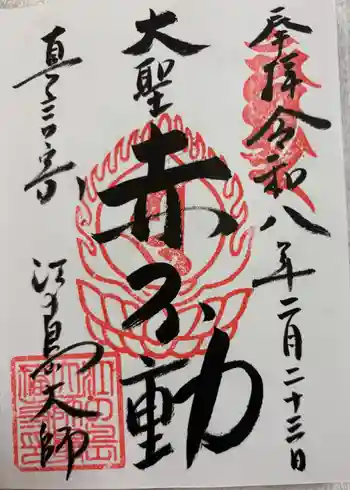 奉拝 令和八年二月二十三日
大聖
赤不動
真言宗
江の島大師